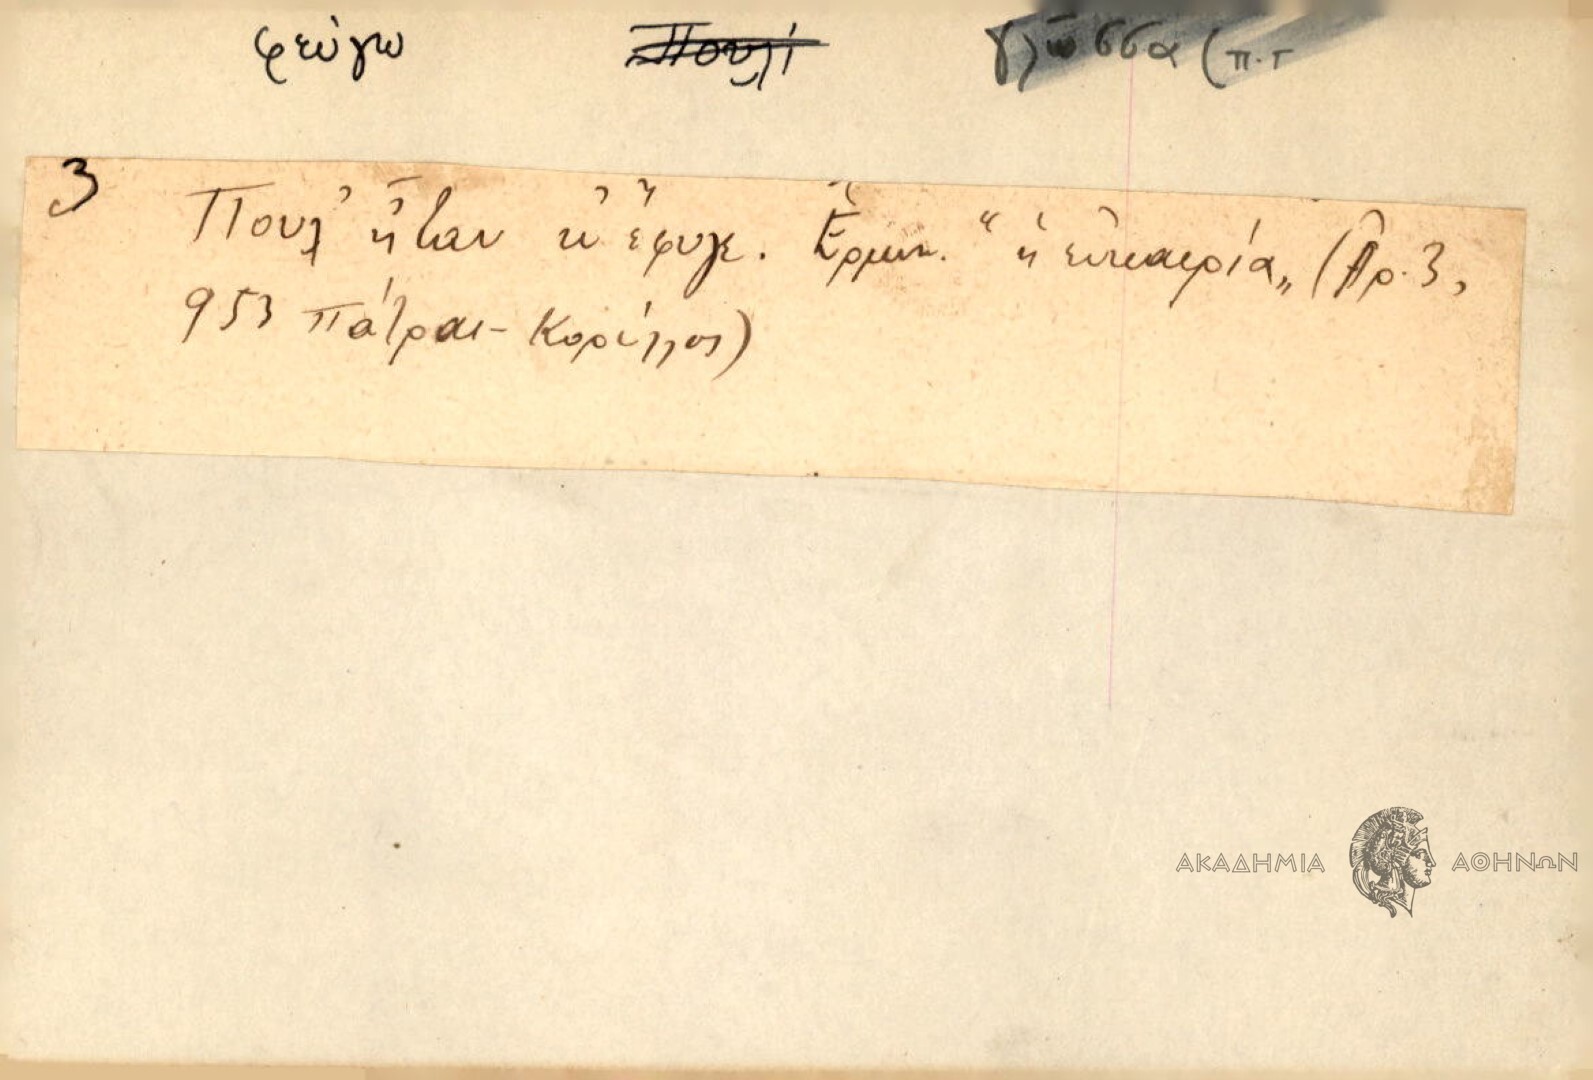 φεύγω Πουλί γλῶσσα (π.τ
3 Πουλ' ἦταν κ' ἔφυγε. Ἑρμην. "ἡ εὐκαιρία„ (Ἀρ. 3,
953 Πάτραι - Κορύλλος)
ΑΚΑΔΗΜΙΑ ΑΘΗΝΩΝ